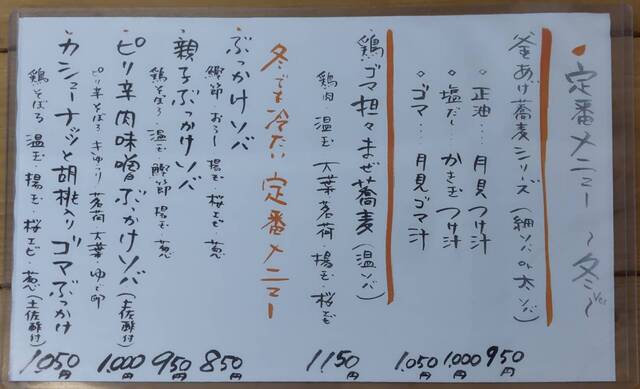 ・定番メニュー 〜冬〜 ver
釜あげ蕎麦シリーズ (細ソバ or 太ソバ)
○正油… 月見つけ汁 950円
○塩だし かき玉つけ汁 1,000円
○ゴマ… 月見ゴマ汁 1,050円
・鶏ゴマ担々まぜ蕎麦 (温ソバ) 1150円
鶏肉 温玉 大葉 茗荷・揚玉・桜エビ
冬でも冷たい定番メニュー
・ぶっかけソバ 850円
鰹節 おろし 揚玉・桜エビ 葱
・親子ぶっかけソバ 950円
鶏そぼろ・温玉 鰹節 揚玉・葱
・ピリ辛肉味噌ぶっかけソバ (土佐酢付) 1,000円
ピリ辛そぼろ きゅうり 茗荷 大葉 ゆで卵
・カシューナッツと胡桃入りゴマぶっかけ 1,050円
鶏そぼろ 温玉・揚玉・桜エビ・葱 (土佐酢付)